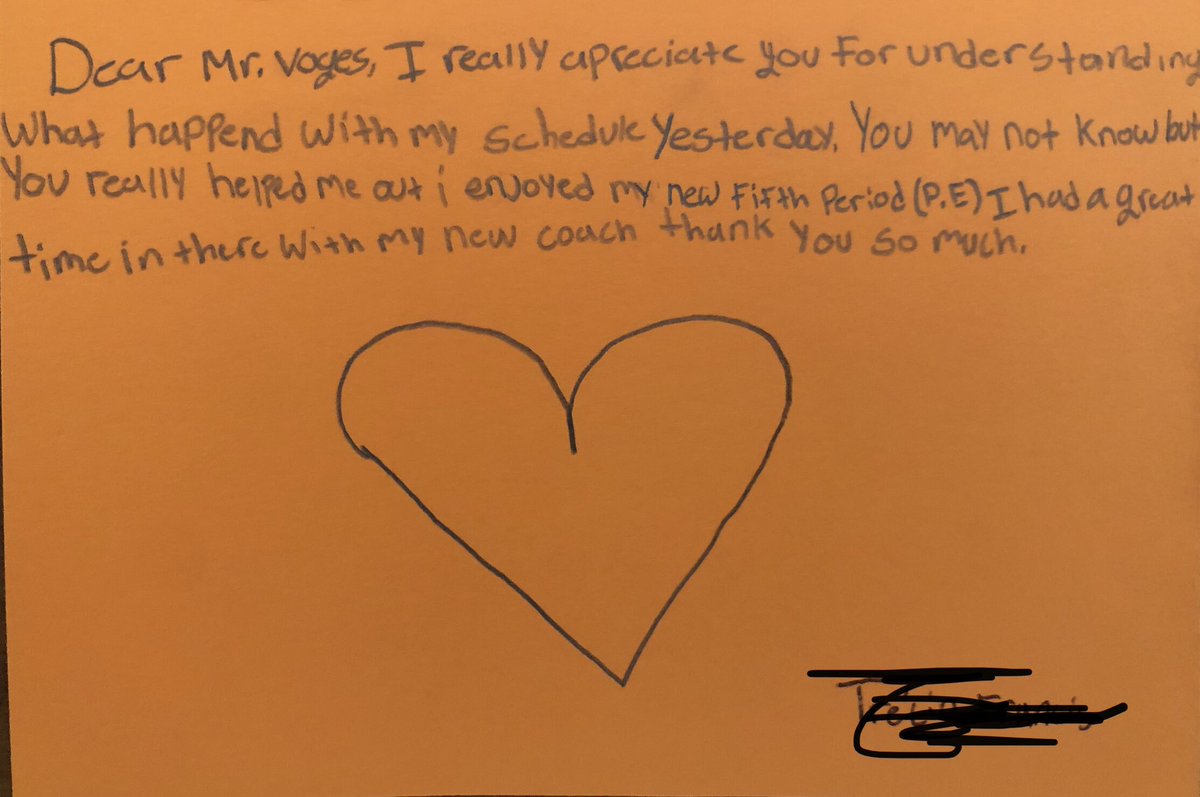 Dear Mr. Voges, I really apreciate you For understanding
What happend with my schedule yesterday. You may not know but
You really helped me out i enjoyed my new Fifth Period (P.E) I had a great
time in there with my new coach thank you so much.